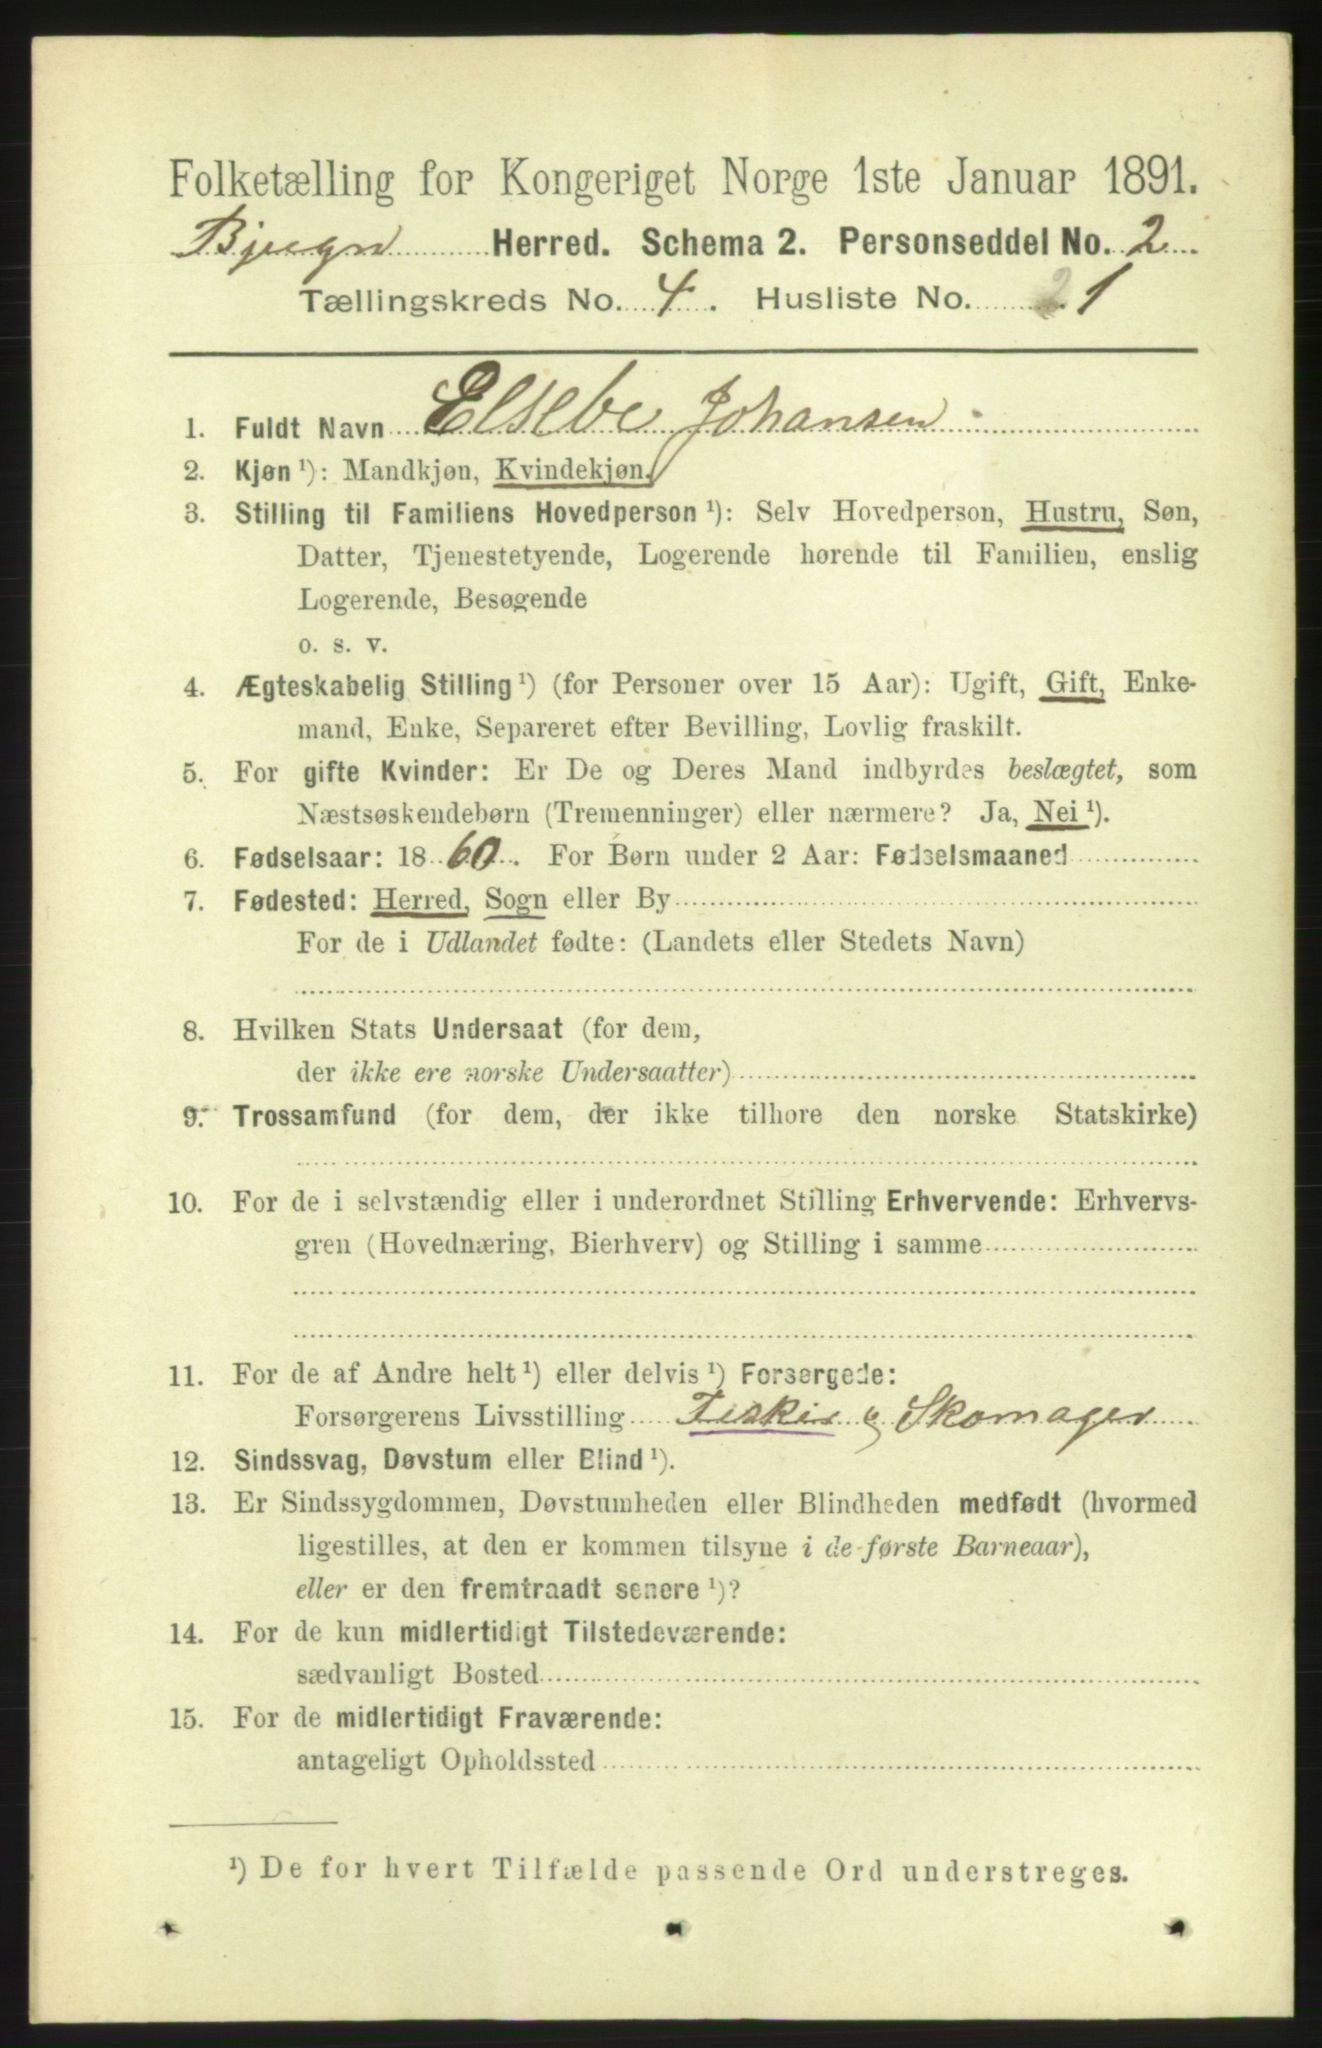 Folketælling for Kongeriget Norge 1ste Januar 1891.
Bjugn Herred. Schema 2. Personseddel No. 2
Tællingskreds No. 4. Husliste No. 21
1. Fuldt Navn Elsebe Johansen
2. Kjøn ¹): Mandkjøn, Kvindekjøn.
3. Stilling til Familiens Hovedperson ¹): Selv Hovedperson, Hustru, Søn,
Datter, Tjenestetyende, Logerende hørende til Familien, enslig
Logerende, Besøgende
o. s. v.
4. Ægteskabelig Stilling ¹) (for Personer over 15 Aar): Ugift, Gift, Enke-
mand, Enke, Separeret efter Bevilling, Lovlig fraskilt.
5. For gifte Kvinder: Er De og Deres Mand indbyrdes beslægtet, som
Næstsøskendebørn (Tremenninger) eller nærmere? Ja, Nei ¹).
6. Fødselsaar: 1860. For Børn under 2 Aar: Fødselsmaaned
7. Fødested: Herred, Sogn eller By
For de i Udlandet fødte: (Landets eller Stedets Navn)
8. Hvilken Stats Undersaat (for dem,
der ikke ere norske Undersaatter)
9. Trossamfund (for dem, der ikke tilhore den norske Statskirke)
10. For de i selvstændig eller i underordnet Stilling Erhvervende: Erhvervs-
gren (Hovednæring, Bierhverv) og Stilling i samme
11. For de af Andre helt ¹) eller delvis ¹) Forsørgede:
Forsørgerens Livsstilling Fisker & Skomager
12. Sindssvag, Døvstum eller Blind ¹).
13. Er Sindssygdommen, Døvstumheden eller Blindheden medfødt (hvormed
ligestilles, at den er kommen tilsyne i de første Barneaar),
eller er den fremtraadt senere ¹)?
14. For de kun midlertidigt Tilstedeværende:
sædvanligt Bosted
15. For de midlertidigt Fraværende:
antageligt Opholdssted
¹) De for hvert Tilfælde passende Ord understreges.